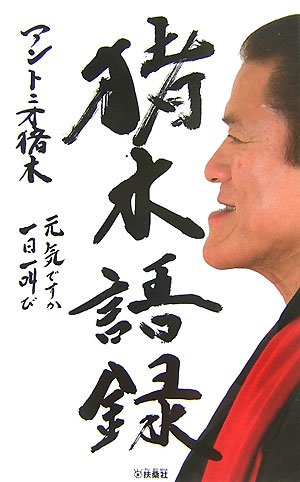 猪木語録
アントニオ猪木
元気ですか
一日一叫び
扶桑社